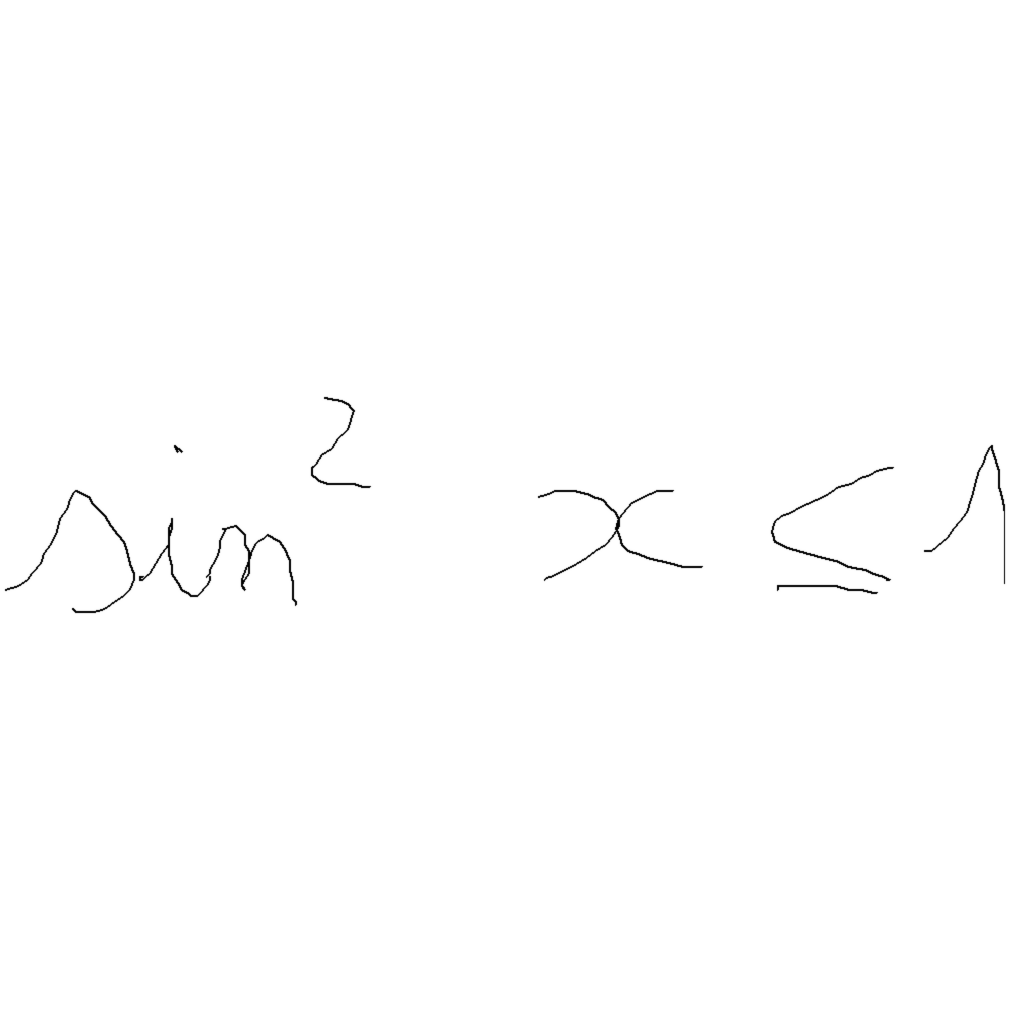 sin² x ≤ 1